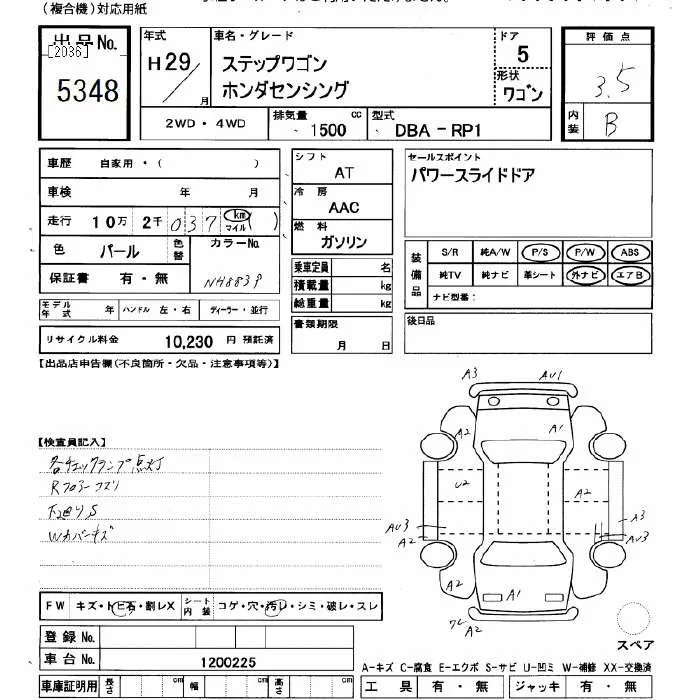 (複合機)対応用紙
出品No.
[2036]
5348
年式
H29
月
車名・グレード
ステップワゴン
ホンダセンシング
ドア
5
形状
ワゴン
評価点
3.5
内装
B
2WD・4WD
排気量
1500
cc
型式
DBA-RP1
車歴 自家用・( )
車検 年 月
走行 10万 2千 037 km マイル ( )
色 パール
色替
カラーNo.
保証書 有・無
NH883P
モデル年式 年 ハンドル 左・右 ディーラー・並行
リサイクル料金 10,230 円 預託済
シフト
AT
冷房
AAC
燃料
ガソリン
乗車定員 名
積載量 kg
総重量 kg
書類期限
月 日
セールスポイント
パワースライドドア
装備品
S/R 純A/W P/S P/W ABS
純TV 純ナビ 革シート 外ナビ エアB
ナビ型番:
後日品
【出品店申告欄(不良箇所・欠品・注意事項等)】
【検査員記入】
各チェックランプ点灯
Rフロアーコスリ
下廻りS
Wカバーキズ
A3
AU1
A2
A1
U2
A2
AU3
A2
A3
AU3
A2
A2
A1
A2
スペア
FW キズ・トビ石・割レX
シート内装 コゲ・穴・汚レ・シミ・破レ・スレ
登録No.
車台No. 1200225
車庫証明用 長さ cm 幅 cm 高さ cm
A-キズ C-腐食 E-エクボ S-サビ U-凹ミ W-補修 XX-交換済
工具 有・無 ジャッキ 有・無